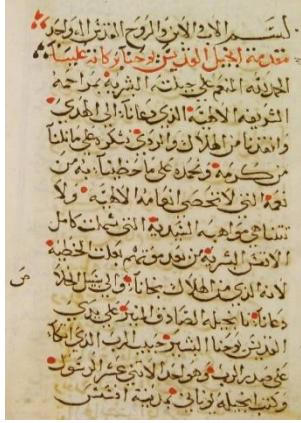 بسم الاب والابن والروح القدس اله واحد
مقدمة انجيل القديس يوحنا بركاته علينا
الحمد لله المنعم على البشرية بمراحمه
الشريفة الالهية الذي دعانا الى الهدى
وانقدنا من الهلاك والردى نشكره على ما نلنا
من كرمه ونحمده على ما حظينا به من
نعمه التي لا تحصى انعامه الالهية ولا
تتناهى مواهبه التي شملت كامل
الانفس البشرية من بعد موتهم بتلك الخطية
لانه الذي من الهلاك نجانا والى سبل
دعانا بانجيله الصادق المنير على يدي
القديس يوحنا البشير حبيب الرب الذي اتكا
على صدر الرب وهو احد الاثني عشر الرسول
وكتب انجيله يوناني بمدينة افسس